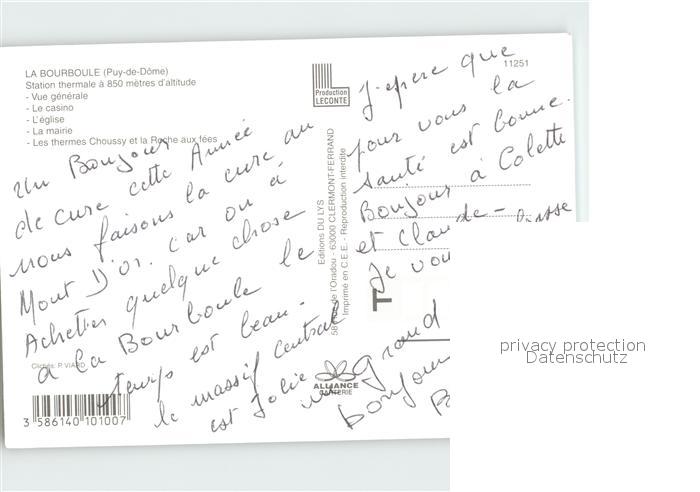 LA BOURBOULE (Puy-de-Dôme)
Station thermale à 850 mètres d'altitude
- Vue générale
- Le casino
- L'église
- La mairie
- Les thermes Choussy et la Roche aux fées
Un Bonjour
de cure cette Année
nous faisons la cure au
Mont D'or. Car on à
Achetier quelque chose
à La Bourboule le
temps est beau.
le massif central
est Jolie
Clichés: P. VIARD
3 586140 101007
Production
LECONTE
Editions DU LYS
58 rue de l'Oradou - 63000 CLERMONT-FERRAND
Imprimé en C.E.E. - Reproduction interdite
ALLIANCE
CARTERIE
11251
J'epere que
pour vous la
santé est bonne.
Bonjour à Colette
et Claude -
Je vou
T
grand
bonjour
privacy protection
Datenschutz